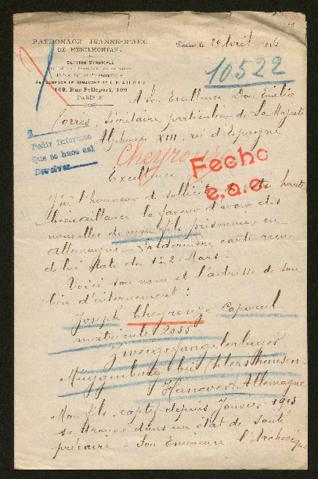 PATRONAGE JEANNE-D'ARC
DE MÉNILMONTANT
Paris, le 29 Avril
10522
169, Rue Pelleport, 169
PARIS
A Son Excellence Don Emilio
Torres, Secrétaire particulier de Sa Majesté
Alphonse XIII, roi d'Espagne
Pedir Informe
Que se hace así
Devolver
Cheyrouze
Fecho
e.a.c.
Excellence
J'ai l'honneur de solliciter de votre haute
bienveillance la faveur d'avoir des
nouvelles de mon fils prisonnier en
Allemagne. La dernière carte reçue
de lui date du 22 Mars.
Voici son nom et l'adresse de son
lieu d'internement :
Joseph Cheyrouze Caporal
matricule 2055
Zweigefangenlager
Hanover Allemagne
Mon fils, captif depuis Janvier 1915
se trouve dans un état de santé
précaire. Son Eminence l'Archevêque